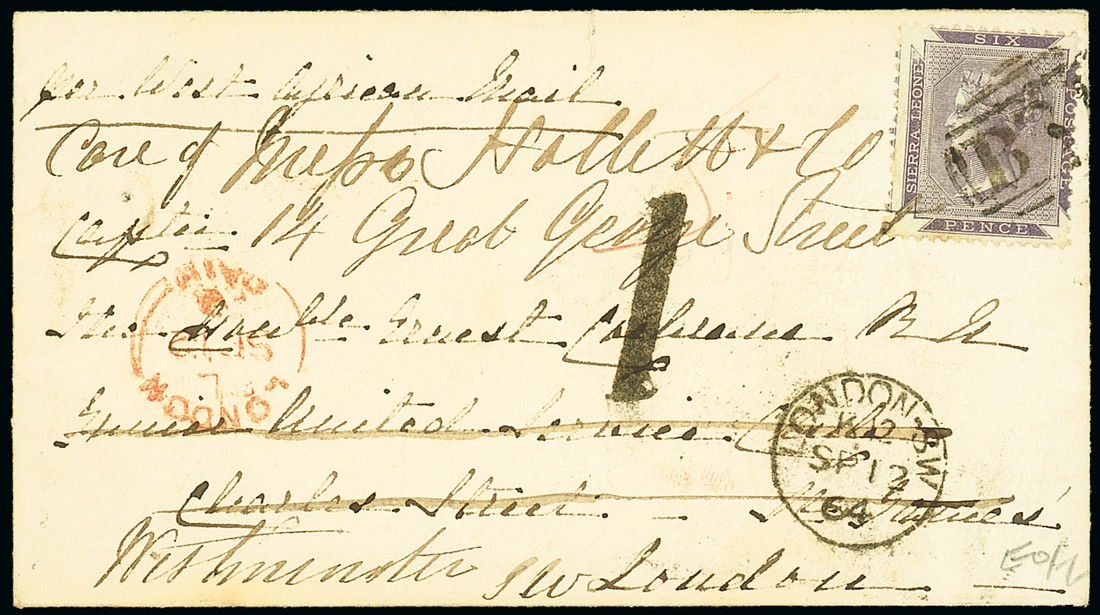 per West African Mail
Care of Messrs Hallett & Co
14 Great George Street
The Honble Ernest Cochrane R N
Junior United Service Club
Charles Street St James'
Westminster SW London
SIX
PENCE
SIERRA LEONE
POSTAGE
B
1
LONDON
PAID
LONDON-SW
SP 12
64